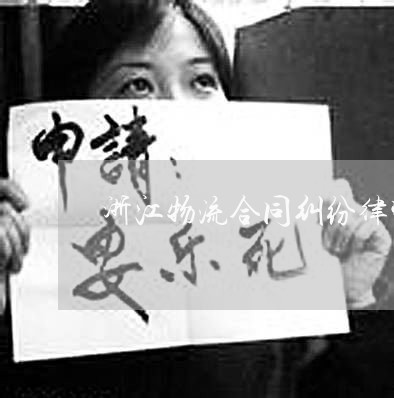 申請：
浙江物流合同纠纷律
安乐死